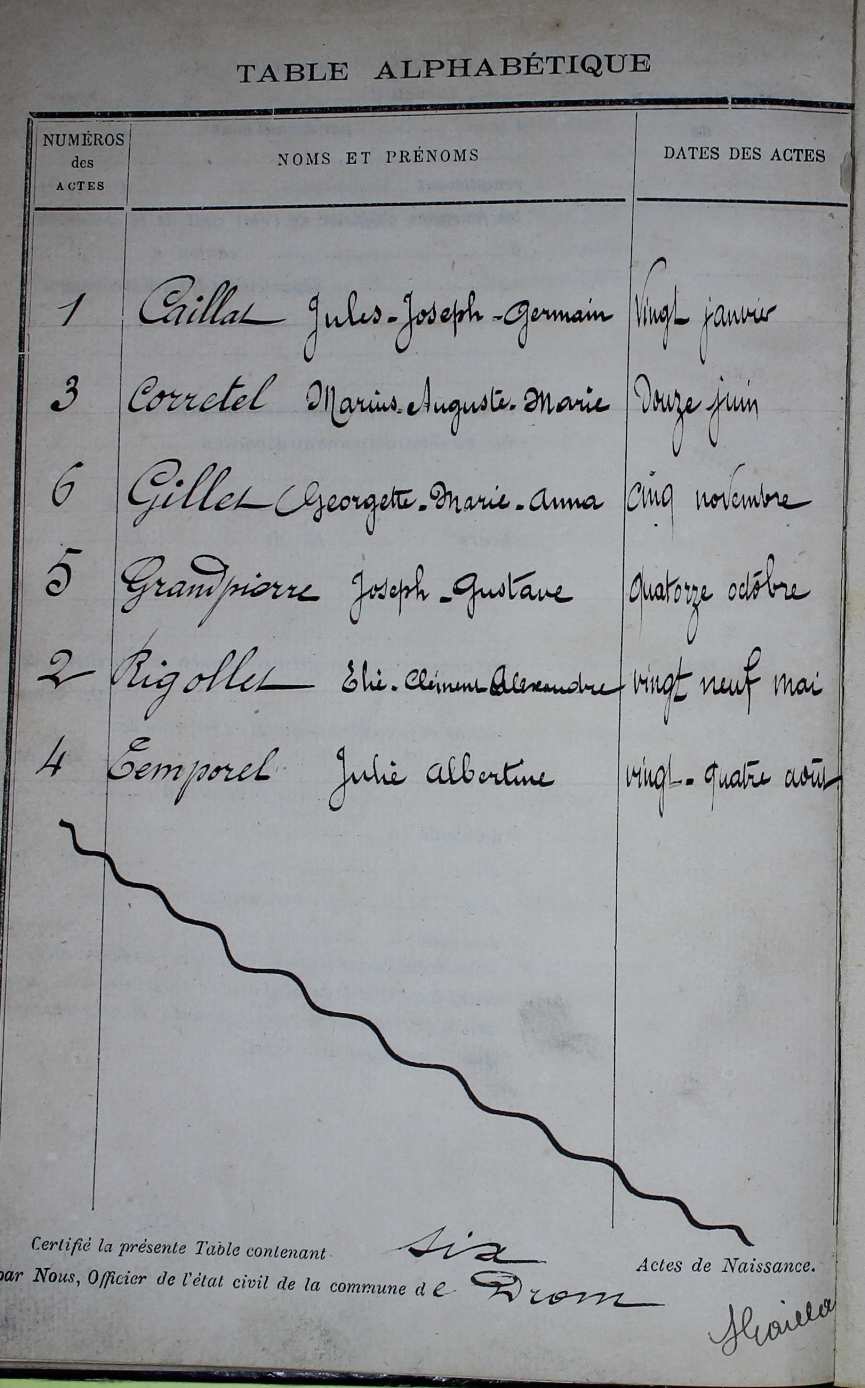 TABLE ALPHABÉTIQUE
NUMÉROS des ACTES NOMS ET PRÉNOMS DATES DES ACTES
1 Caillat Jules-Joseph-Germain Vingt janvier
3 Corretel Marius-Auguste-Marie Douze juin
6 Gillet Georgette-Marie-Anna cinq novembre
5 Grandpierre Joseph-Gustave quatorze octobre
2 Rigollet Elie-Clément Alexandre vingt neuf mai
4 Temporel Julie Albertine vingt-quatre août
Certifié la présente Table contenant six Actes de Naissance.
par Nous, Officier de l'état civil de la commune de Drom